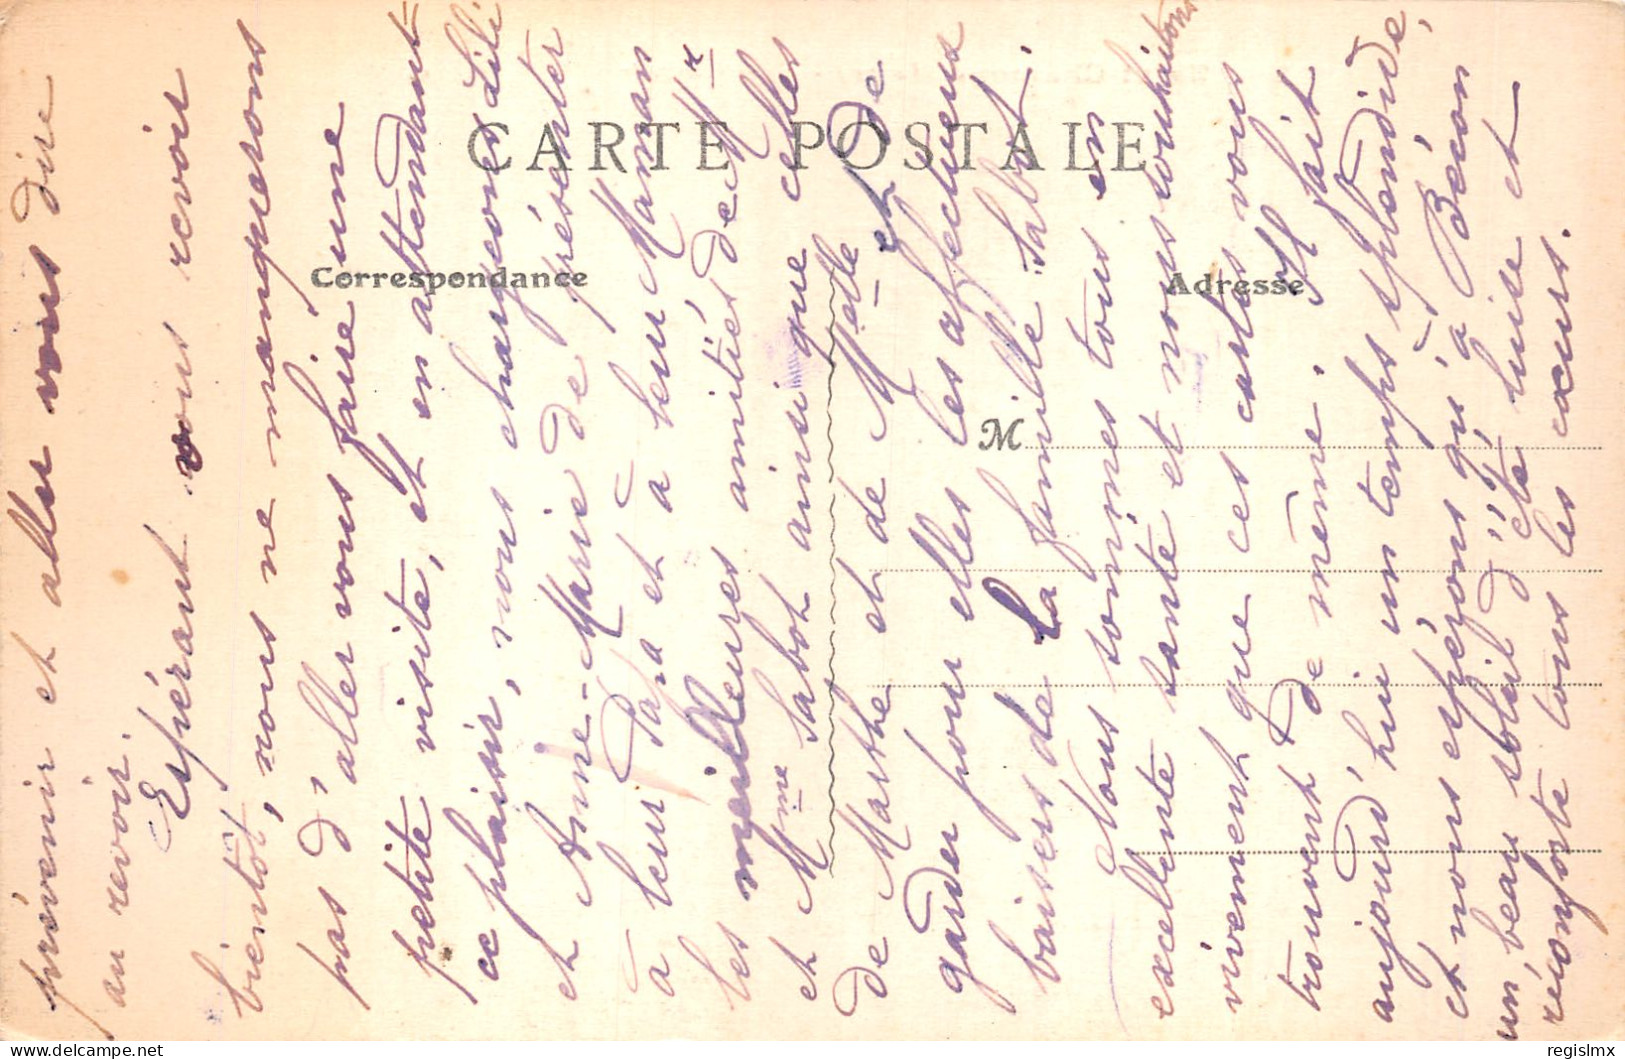 CARTE POSTALE
Correspondance
Adresse
M
prévenir et aller vous dire
au revoir.
Espérant vous revoir
bientôt, nous ne manquerons
pas d'aller vous faire une
petite visite, et en attendant
ce plaisir, nous chargeons Lili
et Anne-Marie de présenter
à leur Papa et à leur Maman
les meilleures amitiés de Mr
et Mme Sabot ainsi que celles
de Marthe et de Melle et de
garder pour elles les affectueux
baisers de la famille Sabot.
Nous sommes tous en
excellente santé et nous souhaitons
vivement que ces cartes vous
trouvent de même. Il fait
aujourd'hui un temps splendide,
et nous espérons qu'à Bécon
un beau soleil d'été luise et
réconforte tous les cœurs.
regislmx